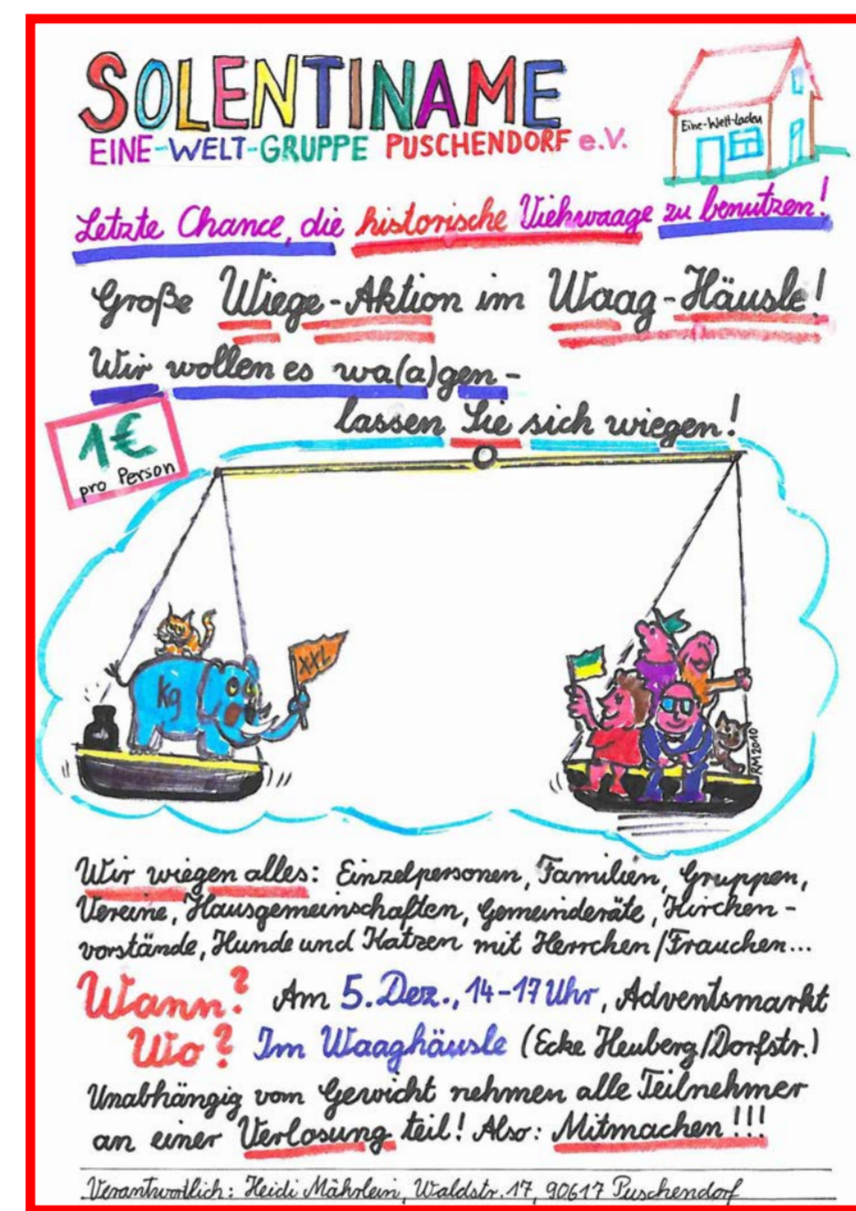 SOLENTINAME
EINE-WELT-GRUPPE PUSCHENDORF e.V.
Eine-Welt-Laden
Letzte Chance, die historische Viehwaage zu benutzen!
Große Wiege-Aktion im Waag-Häusle!
Wir wollen es wa(a)gen-
lassen Sie sich wiegen!
1€
pro Person
XXL
kg
RM2010
Wir wiegen alles: Einzelpersonen, Familien, Gruppen,
Vereine, Hausgemeinschaften, Gemeinderäte, Kirchen-
vorstände, Hunde und Katzen mit Herrchen/Frauchen...
Wann? Am 5. Dez., 14-17 Uhr, Adventsmarkt
Wo? Im Waaghäusle (Ecke Heuberg/Dorfstr.)
Unabhängig vom Gewicht nehmen alle Teilnehmer
an einer Verlosung teil! Also: Mitmachen!!!
Verantwortlich: Heidi Mährlein, Waldstr. 17, 90617 Puschendorf